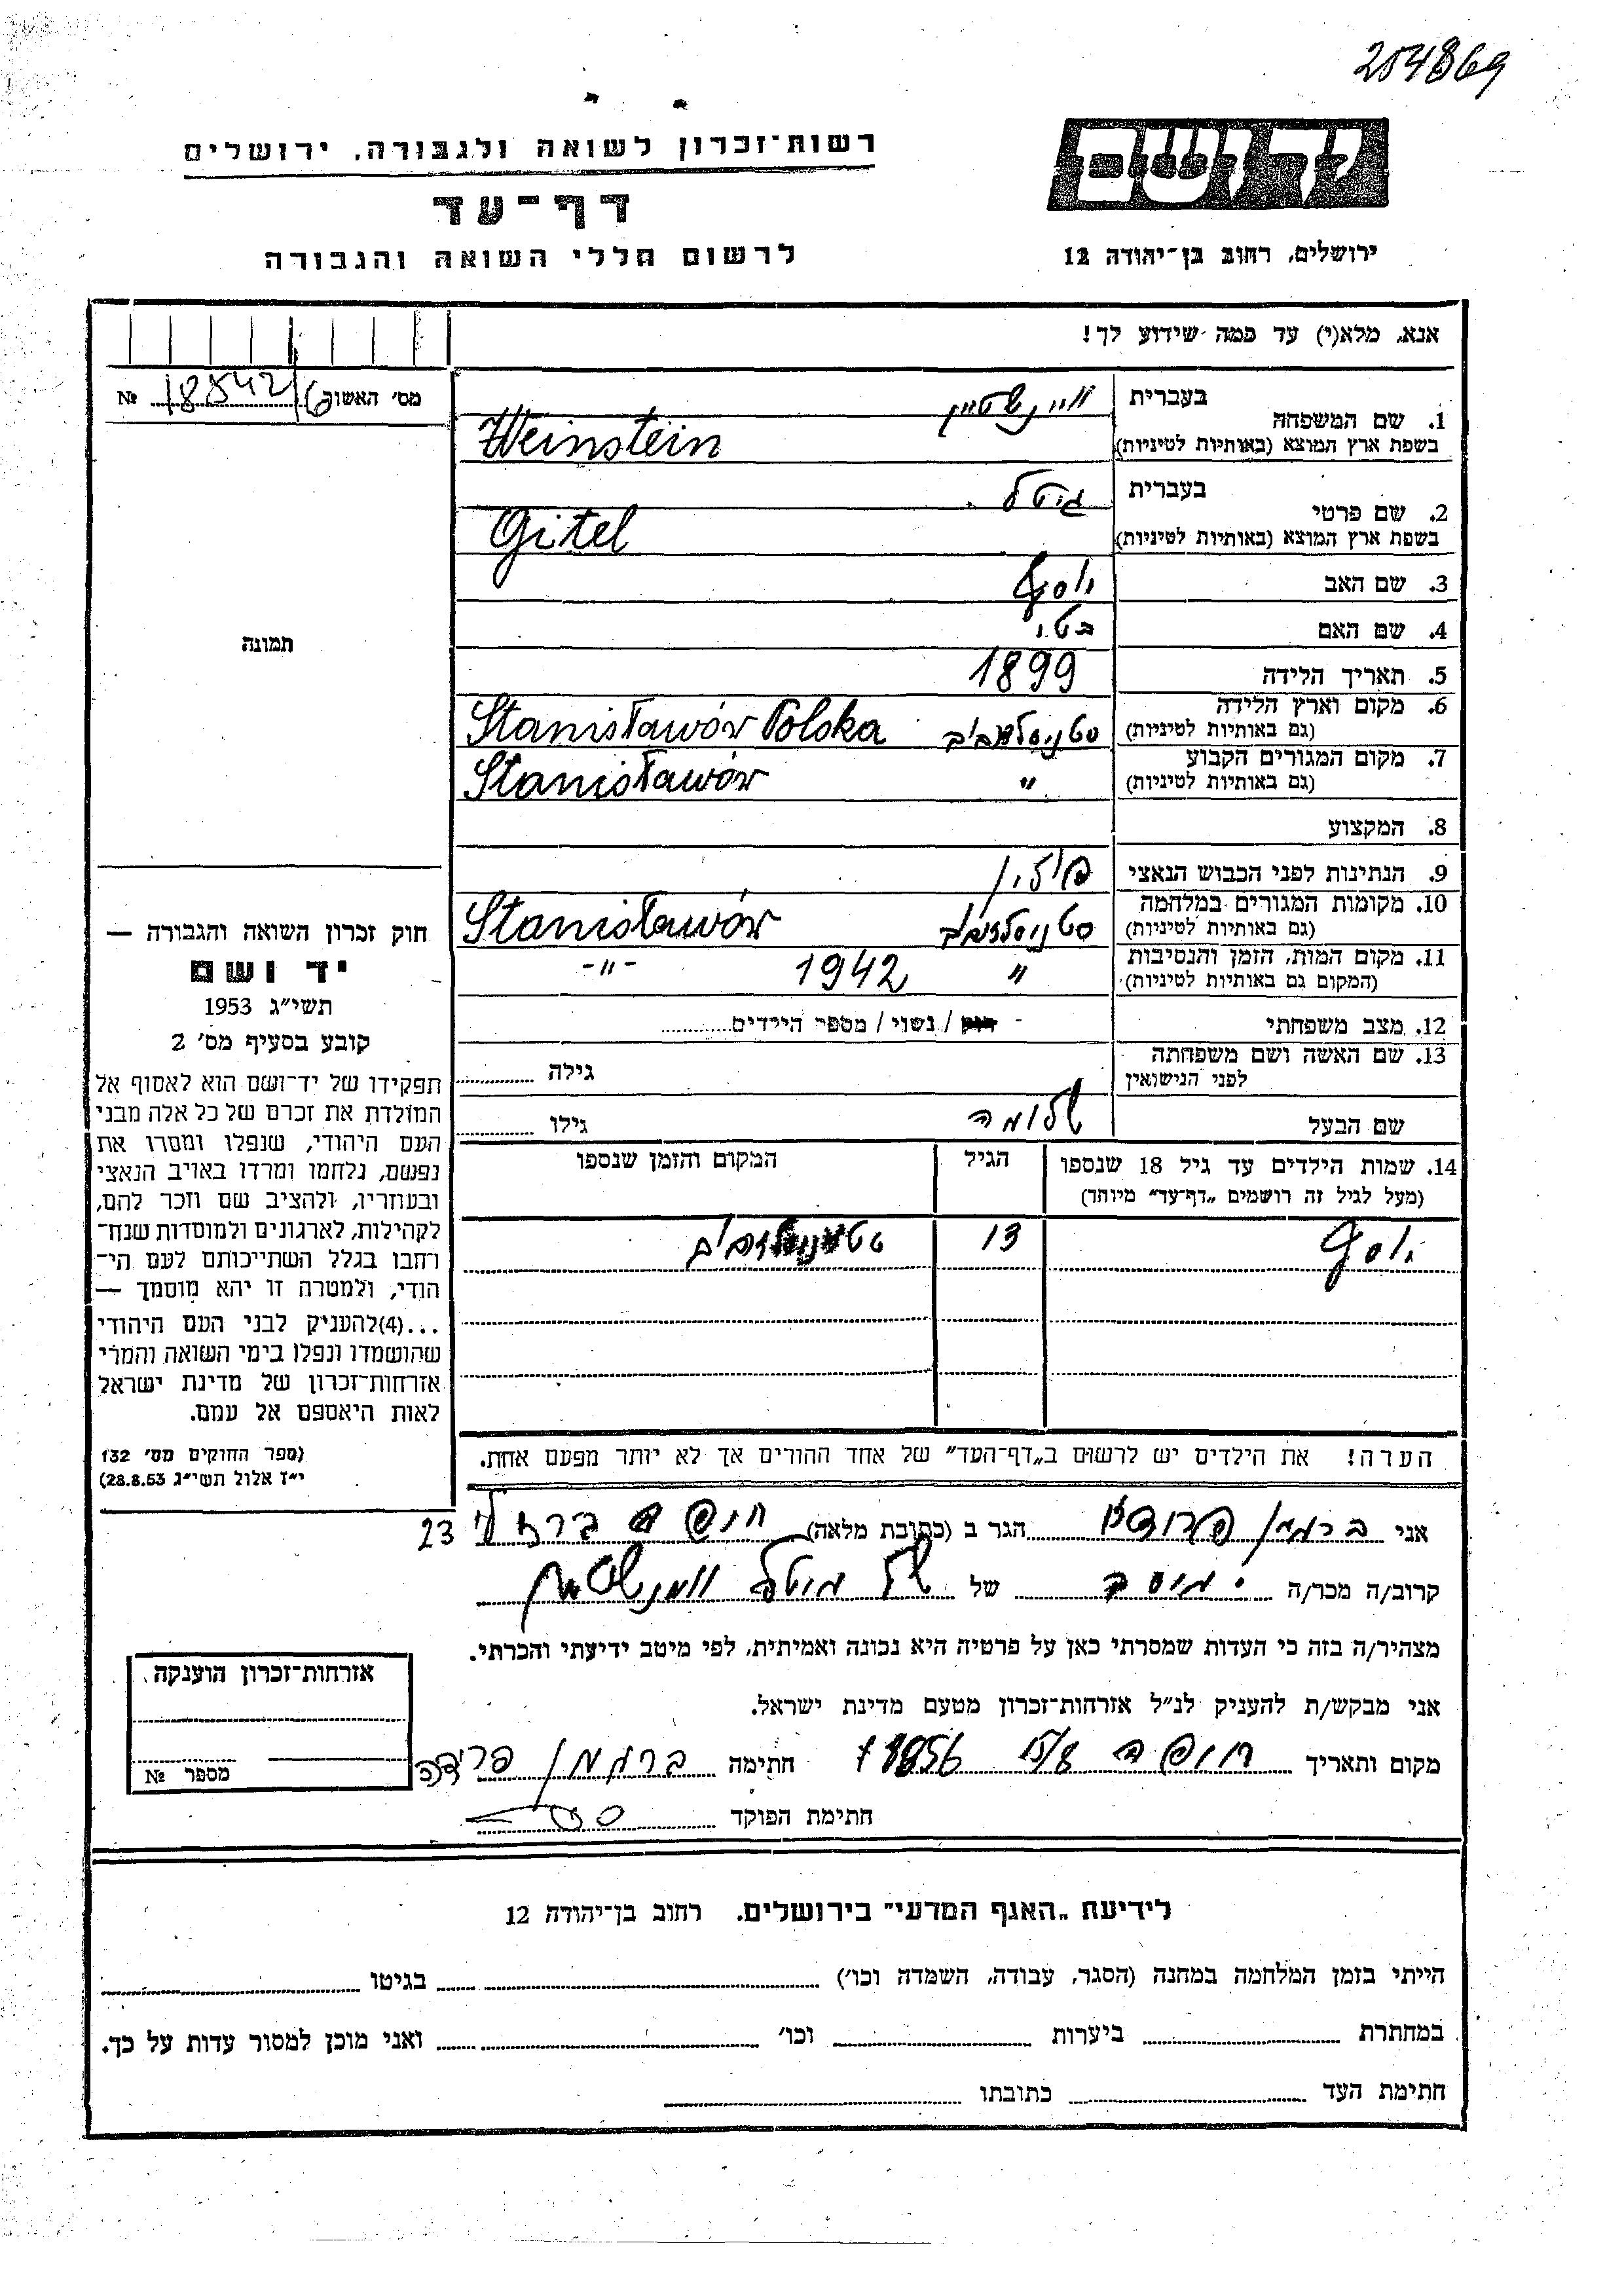 254869
רשות־זכרון לשואה ולגבורה, ירושלים
דף־עד
לרשום חללי השואה והגבורה
יד ושם
ירושלים, רחוב בן־יהודה 12
אנא, מלא(י) עד כמה שידוע לך!
מס' האשור 18542/6 №
תמונה
1. שם המשפחה
בעברית ווינשטיין
בשפת ארץ המוצא (באותיות לטיניות) Weinstein
2. שם פרטי
בעברית גיטל
בשפת ארץ המוצא (באותיות לטיניות) Gitel
3. שם האב יוסף
4. שם האם
5. תאריך הלידה 1899
6. מקום וארץ הלידה
(גם באותיות לטיניות) סטניסלבוב Stanisławów Polska
7. מקום המגורים הקבוע
(גם באותיות לטיניות) " Stanisławów
8. המקצוע
9. הנתינות לפני הכבוש הנאצי פולין
10. מקומות המגורים במלחמה
(גם באותיות לטיניות) סטניסלבוב Stanisławów
11. מקום המות, הזמן והנסיבות
(המקום גם באותיות לטיניות) " 1942 -"-
12. מצב משפחתי רווק / נשוי / מספר הילדים
13. שם האשה ושם משפחתה
לפני הנישואין גילה
שם הבעל שלומה גילו
14. שמות הילדים עד גיל 18 שנספו
(מעל לגיל זה רושמים „דף־עד" מיוחד)
הגיל
המקום והזמן שנספו
יוסף 13
הערה! את הילדים יש לרשום ב„דף־העד" של אחד ההורים אך לא יותר מפעם אחת.
חוק זכרון השואה והגבורה —
יד ושם
תשי"ג 1953
קובע בסעיף מס' 2
תפקידו של יד־ושם הוא לאסוף אל
המולדת את זכרם של כל אלה מבני
העם היהודי, שנפלו ומסרו את
נפשם, נלחמו ומרדו באויב הנאצי
ובעוזריו, ולהציב שם וזכר להם,
לקהילות, לארגונים ולמוסדות שנח־
רחבו בגלל השתייכותם לעם הי־
הודי, ולמטרה זו יהא מוסמך —
...(4)להעניק לבני העם היהודי
שהושמדו ונפלו בימי השואה והמרי
אזרחות־זכרון של מדינת ישראל
לאות היאספם אל עמם.
(ספר החוקים מס' 132
י"ז אלול תשי"ג 28.8.53)
אני ברגמן פרידה הגר ב (כתובת מלאה) חיפה ברזילי 23
קרוב/ה מכר/ה של גיטל ווינשטיין
מצהיר/ה בזה כי העדות שמסרתי כאן על פרטיה היא נכונה ואמיתית, לפי מיטב ידיעתי והכרתי.
אני מבקש/ת להעניק לנ"ל אזרחות־זכרון מטעם מדינת ישראל.
מקום ותאריך חיפה 15/8 1956 חתימה ברגמן פרידה
חתימת הפוקד
אזרחות־זכרון הוענקה
מספר №
לידיעת „האגף המדעי" בירושלים, רחוב בן־יהודה 12
הייתי בזמן המלחמה במחנה (הסגר, עבודה, השמדה וכו') בגיטו
במחתרת ביערות וכו' ואני מוכן למסור עדות על כך.
חתימת העד כתובתו